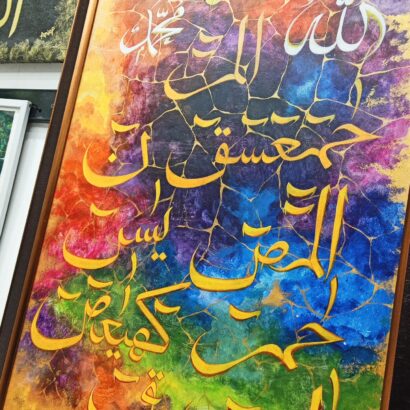 الله محمد
المر
حمعسق ن
المص يس
حم كهيعص
ق